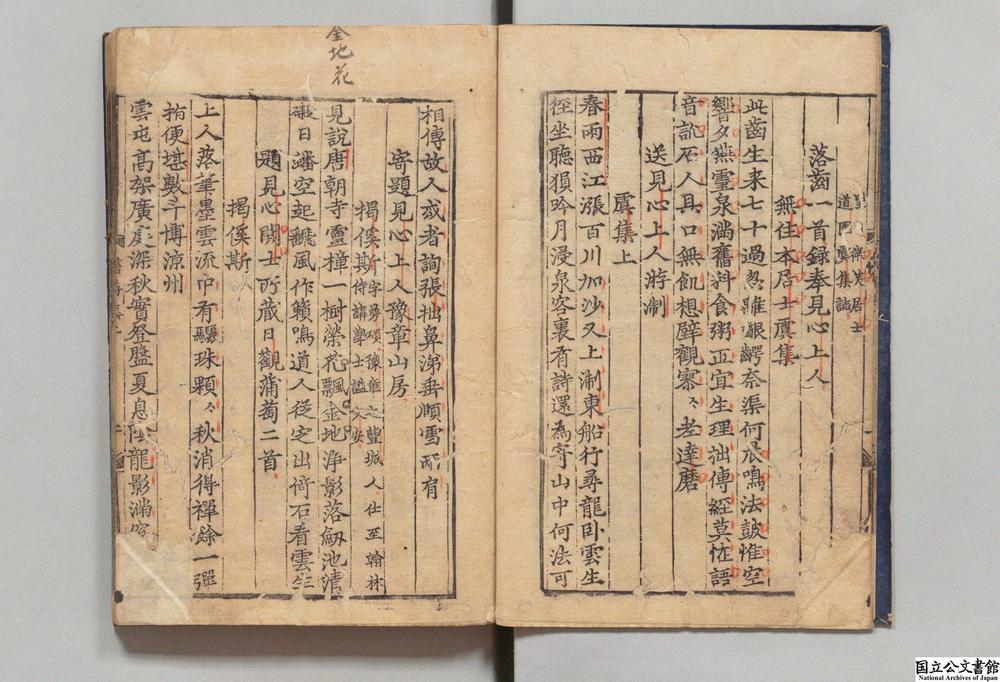 道園虞集誌
落齒一首録奉見心上人
無住本居士虞集
此齒生来七十過忽雖齦齶奈渠何晨鳴法皷惟空
響夕燕靈泉滿舊科食粥正宜生理拙傳經莫恠語
音訛石人具口無飢想壁觀寥々老達磨
送見心上人游淛
虞集上
春雨西江漲百川加沙又上淛東船行尋龍卧雲生
徑坐聽猿吟月浸泉客裏有詩還為寄山中何法可
金地花
相傳故人或者詢張拙鼻涕垂頤雪一作有
寄題見心上人豫章山房
揭傒斯字曼碩豫章之豐城人仕至翰林侍講學士謚文安
見說唐朝寺靈橦一樹榮花飄金地净影落劒池清
礙日蟠空起飜風作籟鳴道人從定出倚石看雲生
題見心開士所蔵日觀蒲萄二首
揭傒斯
上人落筆墨雲流中有驪珠顆々秋消得禪餘一彈
指便堪數斗博涼州
雲屯髙架廣庭深秋實登盤夏息陰龍影滿
国立公文書館
National Archives of Japan